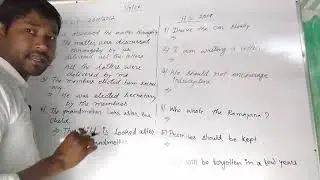 Voice
We discussed the matter thoroughly
The matter was discussed
thoroughly by us
delivered all the letters
All the letters
were delivered by me
The members elected him secretary
He was elected secretary
by the members
The grandmother looks after the
child
⇒ The child is looked after
grandmother
H.W
1) Drive the car slowly
2) I am writing a letter.
3) We should not encourage
4) Who wrote the Ramayana?
5) Promises should be kept
will be forgotten in a few years